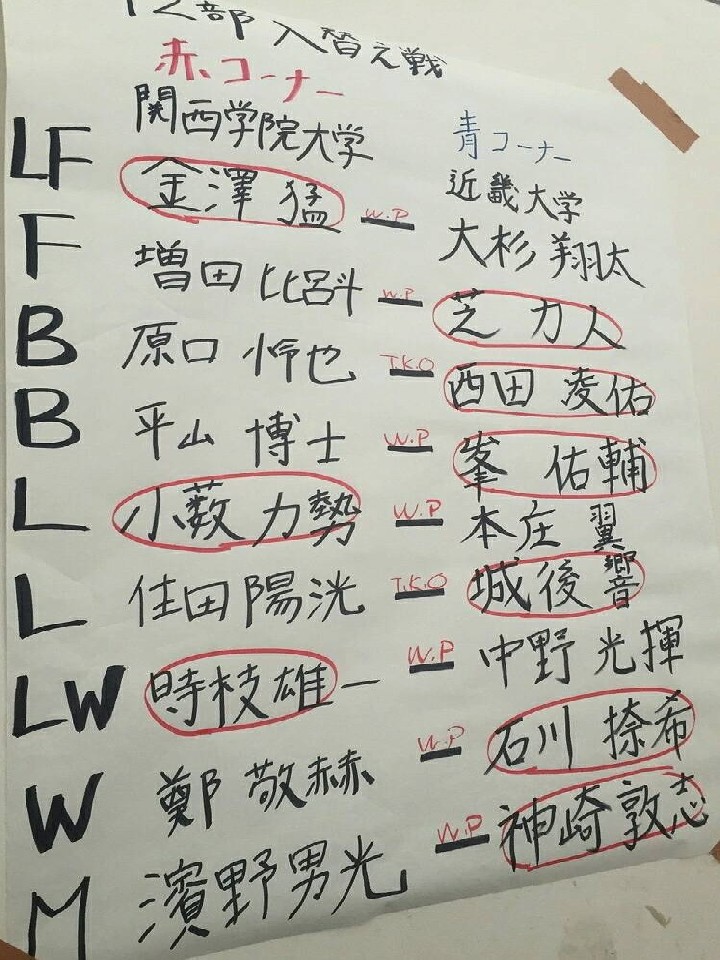 部入替え戦
赤コーナー
関西学院大学
青コーナー
近畿大学
LF 金澤 猛 W.P 大杉 翔太
F 増田 比呂斗 W.P 芝 力人
B 原口 怜也 T.K.O 西田 凌佑
B 平山 博士 W.P 峯 佑輔
L 小薮 力勢 W.P 本庄 翼
L 住田 陽洸 T.K.O 城後 響
LW 時枝雄一 W.P 中野 光揮
W 鄭 敬赫 W.P 石川 捺希
M 濱野男光 W.P 神崎敦志